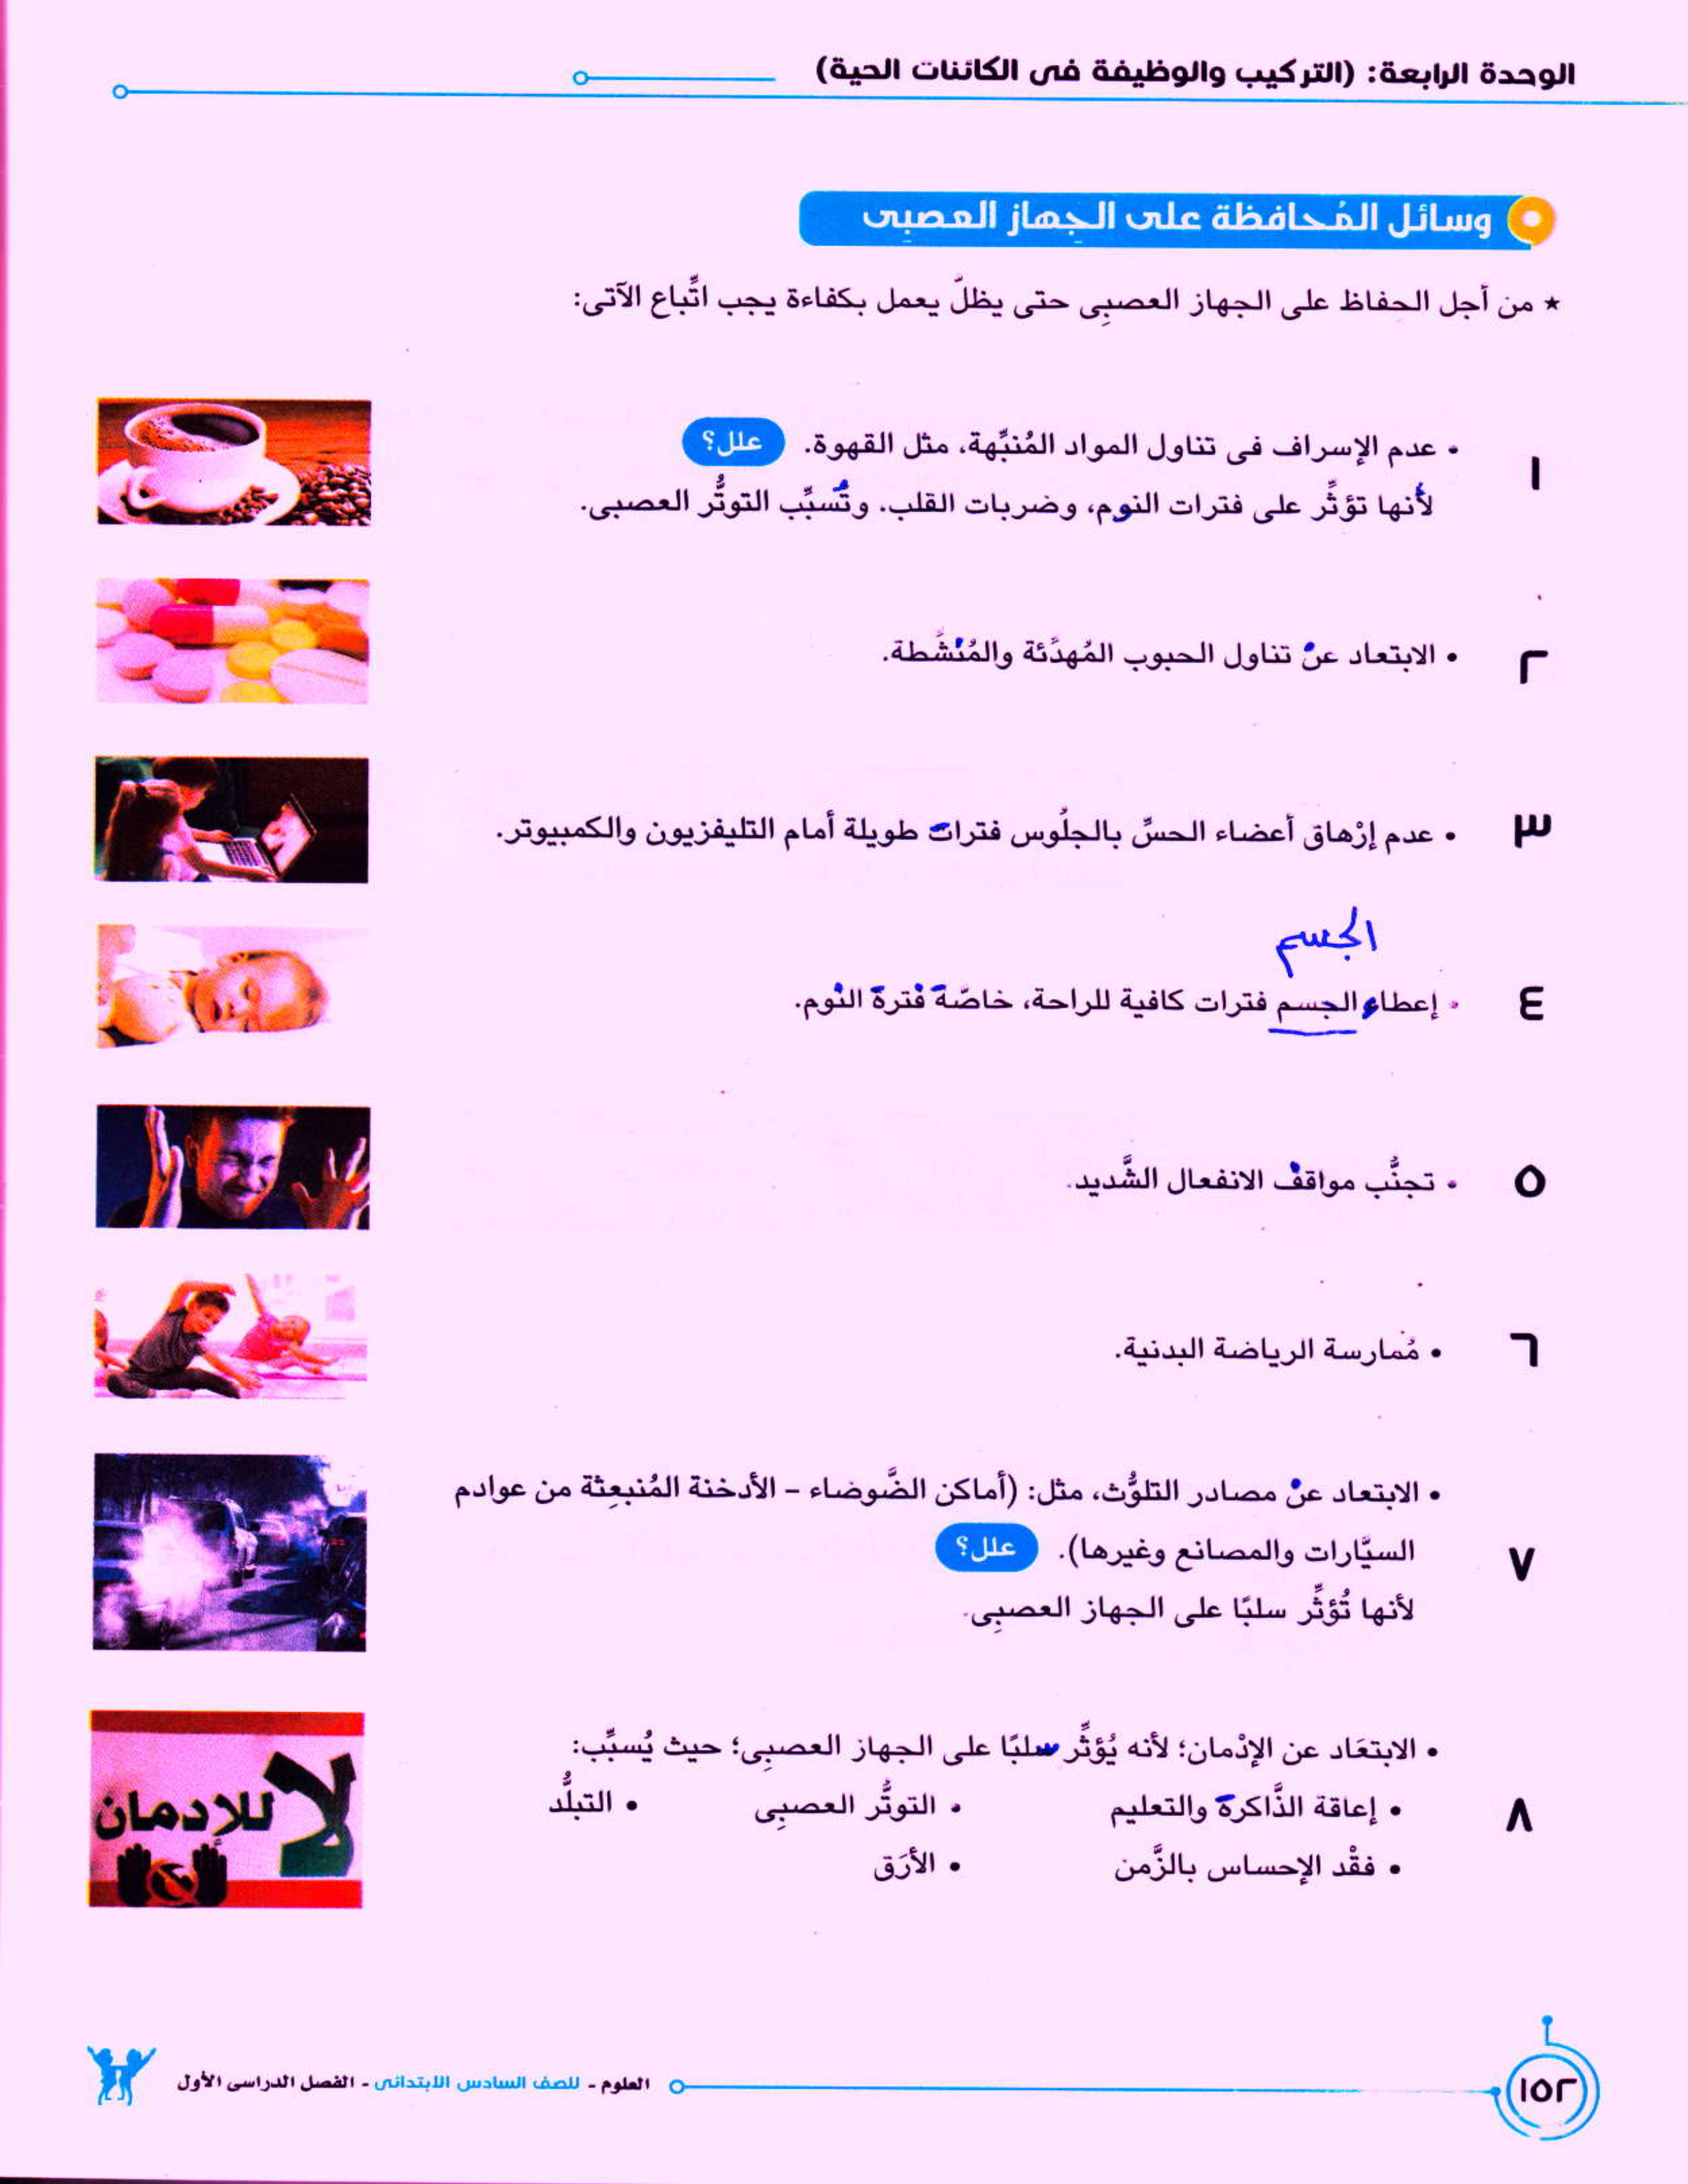 الوحدة الرابعة: (التركيب والوظيفة فى الكائنات الحية)
وسائل المُحافظة على الجهاز العصبِى
★ من أجل الحفاظ على الجهاز العصبِى حتى يظلّ يعمل بكفاءة يجب اتِّباع الآتى:
١
• عدم الإسراف فى تناول المواد المُنبِّهة، مثل القهوة. علل؟
لأنها تؤثِّر على فترات النوم، وضربات القلب. وتُسبِّب التوتُّر العصبى.
٢
• الابتعاد عنْ تناول الحبوب المُهدِّئة والمُنْشِّطة.
٣
• عدم إرْهاق أعضاء الحسِّ بالجلُوس فترات طويلة أمام التليفزيون والكمبيوتر.
الجسم
٤
• إعطاء الجسم فترات كافية للراحة، خاصَّة فْترة النْوم.
٥
• تجنُّب مواقفْ الانفعال الشَّديد.
٦
• مُمارسة الرياضة البدنية.
٧
• الابتعاد عنْ مصادر التلوُّث، مثل: (أماكن الضَّوضاء – الأدخنة المُنبعِثة من عوادم
السيَّارات والمصانع وغيرها). علل؟
لأنها تُؤثِّر سلبًا على الجهاز العصبِى.
٨
• الابتعَاد عن الإدْمان؛ لأنه يُؤثِّر سلبًا على الجهاز العصبِى؛ حيث يُسبِّب:
• إعاقة الذَّاكرة والتعليم • التوتُّر العصبِى • التبلُّد
• فقْد الإحساس بالزَّمن • الأرَق
لا للإدمان
١٥٢
العلوم - للصف السادس الابتدائى - الفصل الدراسى الأول